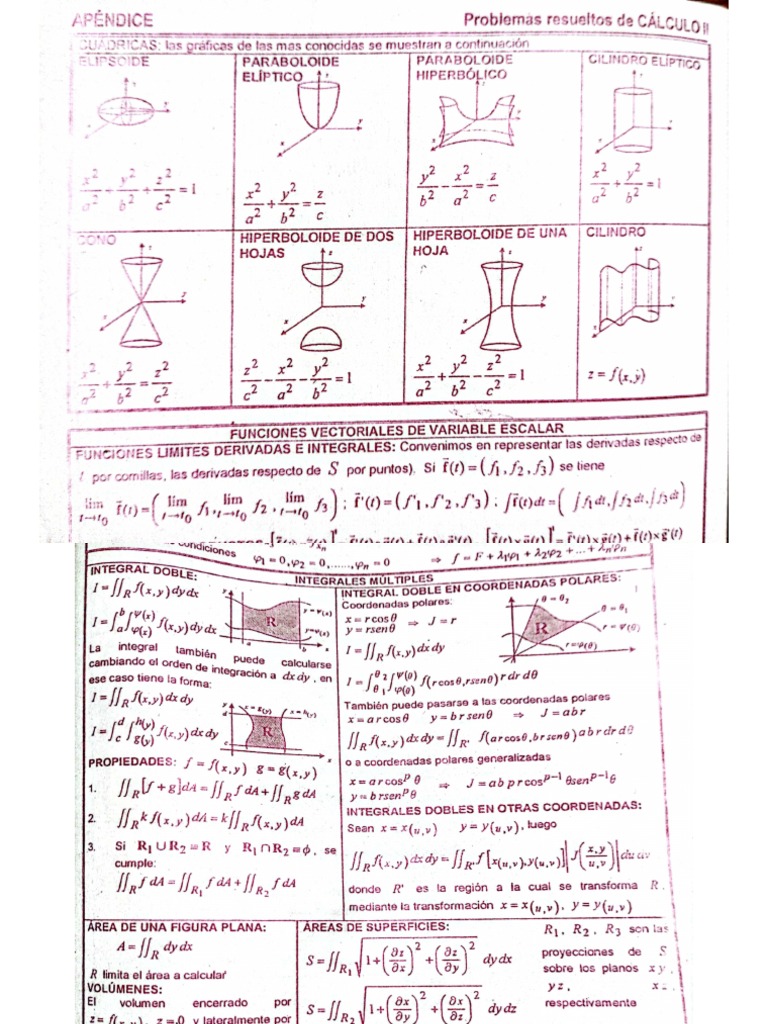 APÉNDICE Problemas resueltos de CÁLCULO II
CUADRICAS: las gráficas de las mas conocidas se muestran a continuación
ELIPSOIDE PARABOLOIDE ELÍPTICO PARABOLOIDE HIPERBÓLICO CILINDRO ELÍPTICO
x²/a² + y²/b² + z²/c² = 1 x²/a² + y²/b² = z/c y²/b² - x²/a² = z/c x²/a² + y²/b² = 1
CONO HIPERBOLOIDE DE DOS HOJAS HIPERBOLOIDE DE UNA HOJA CILINDRO
x²/a² + y²/b² = z²/c² z²/c² - x²/a² - y²/b² = 1 x²/a² + y²/b² - z²/c² = 1 z = f(x,y)
FUNCIONES VECTORIALES DE VARIABLE ESCALAR
FUNCIONES LIMITES DERIVADAS E INTEGRALES: Convenimos en representar las derivadas respecto de
t por comillas, las derivadas respecto de S por puntos). Si f̄(t) = (f₁, f₂, f₃) se tiene
lim t→t₀ f̄(t) = (lim t→t₀ f₁, lim t→t₀ f₂, lim t→t₀ f₃) ; f̄'(t) = (f'₁, f'₂, f'₃) ; ∫f̄(t)dt = (∫f₁dt, ∫f₂dt, ∫f₃dt)
condiciones φ₁ = 0, φ₂ = 0, ......, φₙ = 0 ⇒ f = F + λ₁φ₁ + λ₂φ₂ + ... + λₙφₙ
INTEGRALES MÚLTIPLES
INTEGRAL DOBLE:
I = ∬_R f(x,y) dy dx
I = ∫_a^b ∫_φ(x)^ψ(x) f(x,y) dy dx
y y=ψ(x) R y=φ(x) a b x
La integral también puede calcularse
cambiando el orden de integración a dx dy, en
ese caso tiene la forma:
I = ∬_R f(x,y) dx dy
I = ∫_c^d ∫_g(y)^h(y) f(x,y) dx dy
y x=g(y) x=h(y) d R c x
PROPIEDADES: f = f(x,y) g = g(x,y)
1. ∬_R [f + g] dA = ∬_R f dA + ∬_R g dA
2. ∬_R k f(x,y) dA = k ∬_R f(x,y) dA
3. Si R₁ ∪ R₂ = R y R₁ ∩ R₂ = ϕ, se
cumple:
∬_R f dA = ∬_R₁ f dA + ∬_R₂ f dA
INTEGRAL DOBLE EN COORDENADAS POLARES:
Coordenadas polares:
x = r cos θ
y = r sen θ ⇒ J = r
I = ∬_R f(x,y) dx dy
θ = θ₂ θ = θ₁ R r = ψ(θ) r = φ(θ)
I = ∫_θ₁^θ₂ ∫_φ(θ)^ψ(θ) f(r cos θ, r sen θ) r dr dθ
También puede pasarse a las coordenadas polares
x = a r cos θ y = b r sen θ ⇒ J = a b r
∬_R f(x,y) dx dy = ∬_R' f(ar cos θ, b r sen θ) a b r dr dθ
o a coordenadas polares generalizadas
x = a r cosᵖ θ
y = b r senᵖ θ ⇒ J = a b p r cosᵖ⁻¹ θ senᵖ⁻¹ θ
INTEGRALES DOBLES EN OTRAS COORDENADAS:
Sean x = x(u,v) y = y(u,v), luego
∬_R f(x,y) dx dy = ∬_R' f[x(u,v), y(u,v)] |J(x,y / u,v)| du dv
donde R' es la región a la cual se transforma R.
mediante la transformación x = x(u,v), y = y(u,v)
ÁREA DE UNA FIGURA PLANA:
A = ∬_R dy dx
R limita el área a calcular
VOLÚMENES:
El volumen encerrado por
z = f(x,y), z = 0 y lateralmente por
ÁREAS DE SUPERFICIES:
S = ∬_R₁ √(1 + (∂z/∂x)² + (∂z/∂y)²) dy dx
S = ∬_R₂ √(1 + (∂x/∂y)² + (∂x/∂z)²) dy dz
R₁, R₂, R₃ son las
proyecciones de S
sobre los planos xy,
yz, xz.
respectivamente